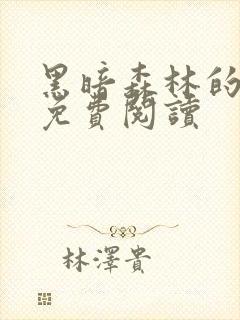 黑暗森林的
免費閱讀
林澤貴